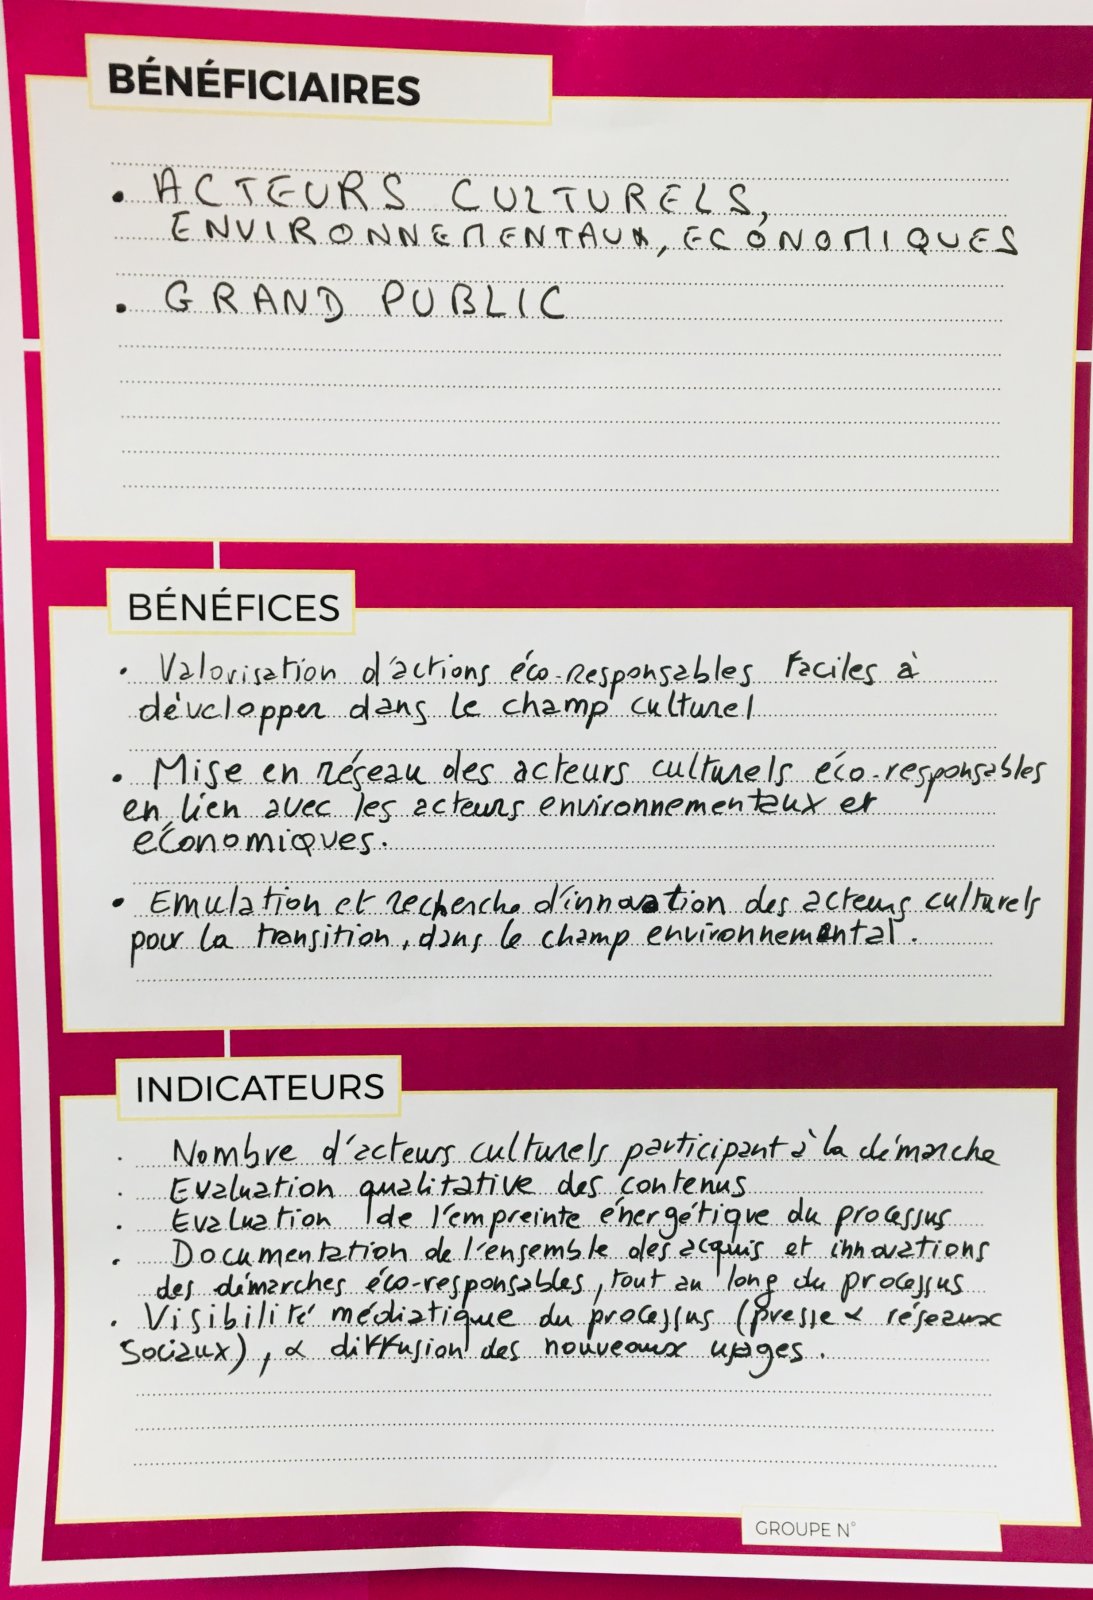 BÉNÉFICIAIRES
• ACTEURS CULTURELS,
ENVIRONNEMENTAUX, ECONOMIQUES
• GRAND PUBLIC
BÉNÉFICES
• Valorisation d'actions éco-responsables faciles à
développer dans le champ culturel
• Mise en réseau des acteurs culturels éco-responsables
en lien avec les acteurs environnementaux et
économiques.
• Emulation et recherche d'innovation des acteurs culturels
pour la transition, dans le champ environnemental.
INDICATEURS
• Nombre d'acteurs culturels participant à la démarche
• Evaluation qualitative des contenus
• Evaluation de l'empreinte énergétique du processus
• Documentation de l'ensemble des acquis et innovations
des démarches éco-responsables, tout au long du processus
• Visibilité médiatique du processus (presse & réseaux
sociaux), & diffusion des nouveaux usages.
GROUPE N°